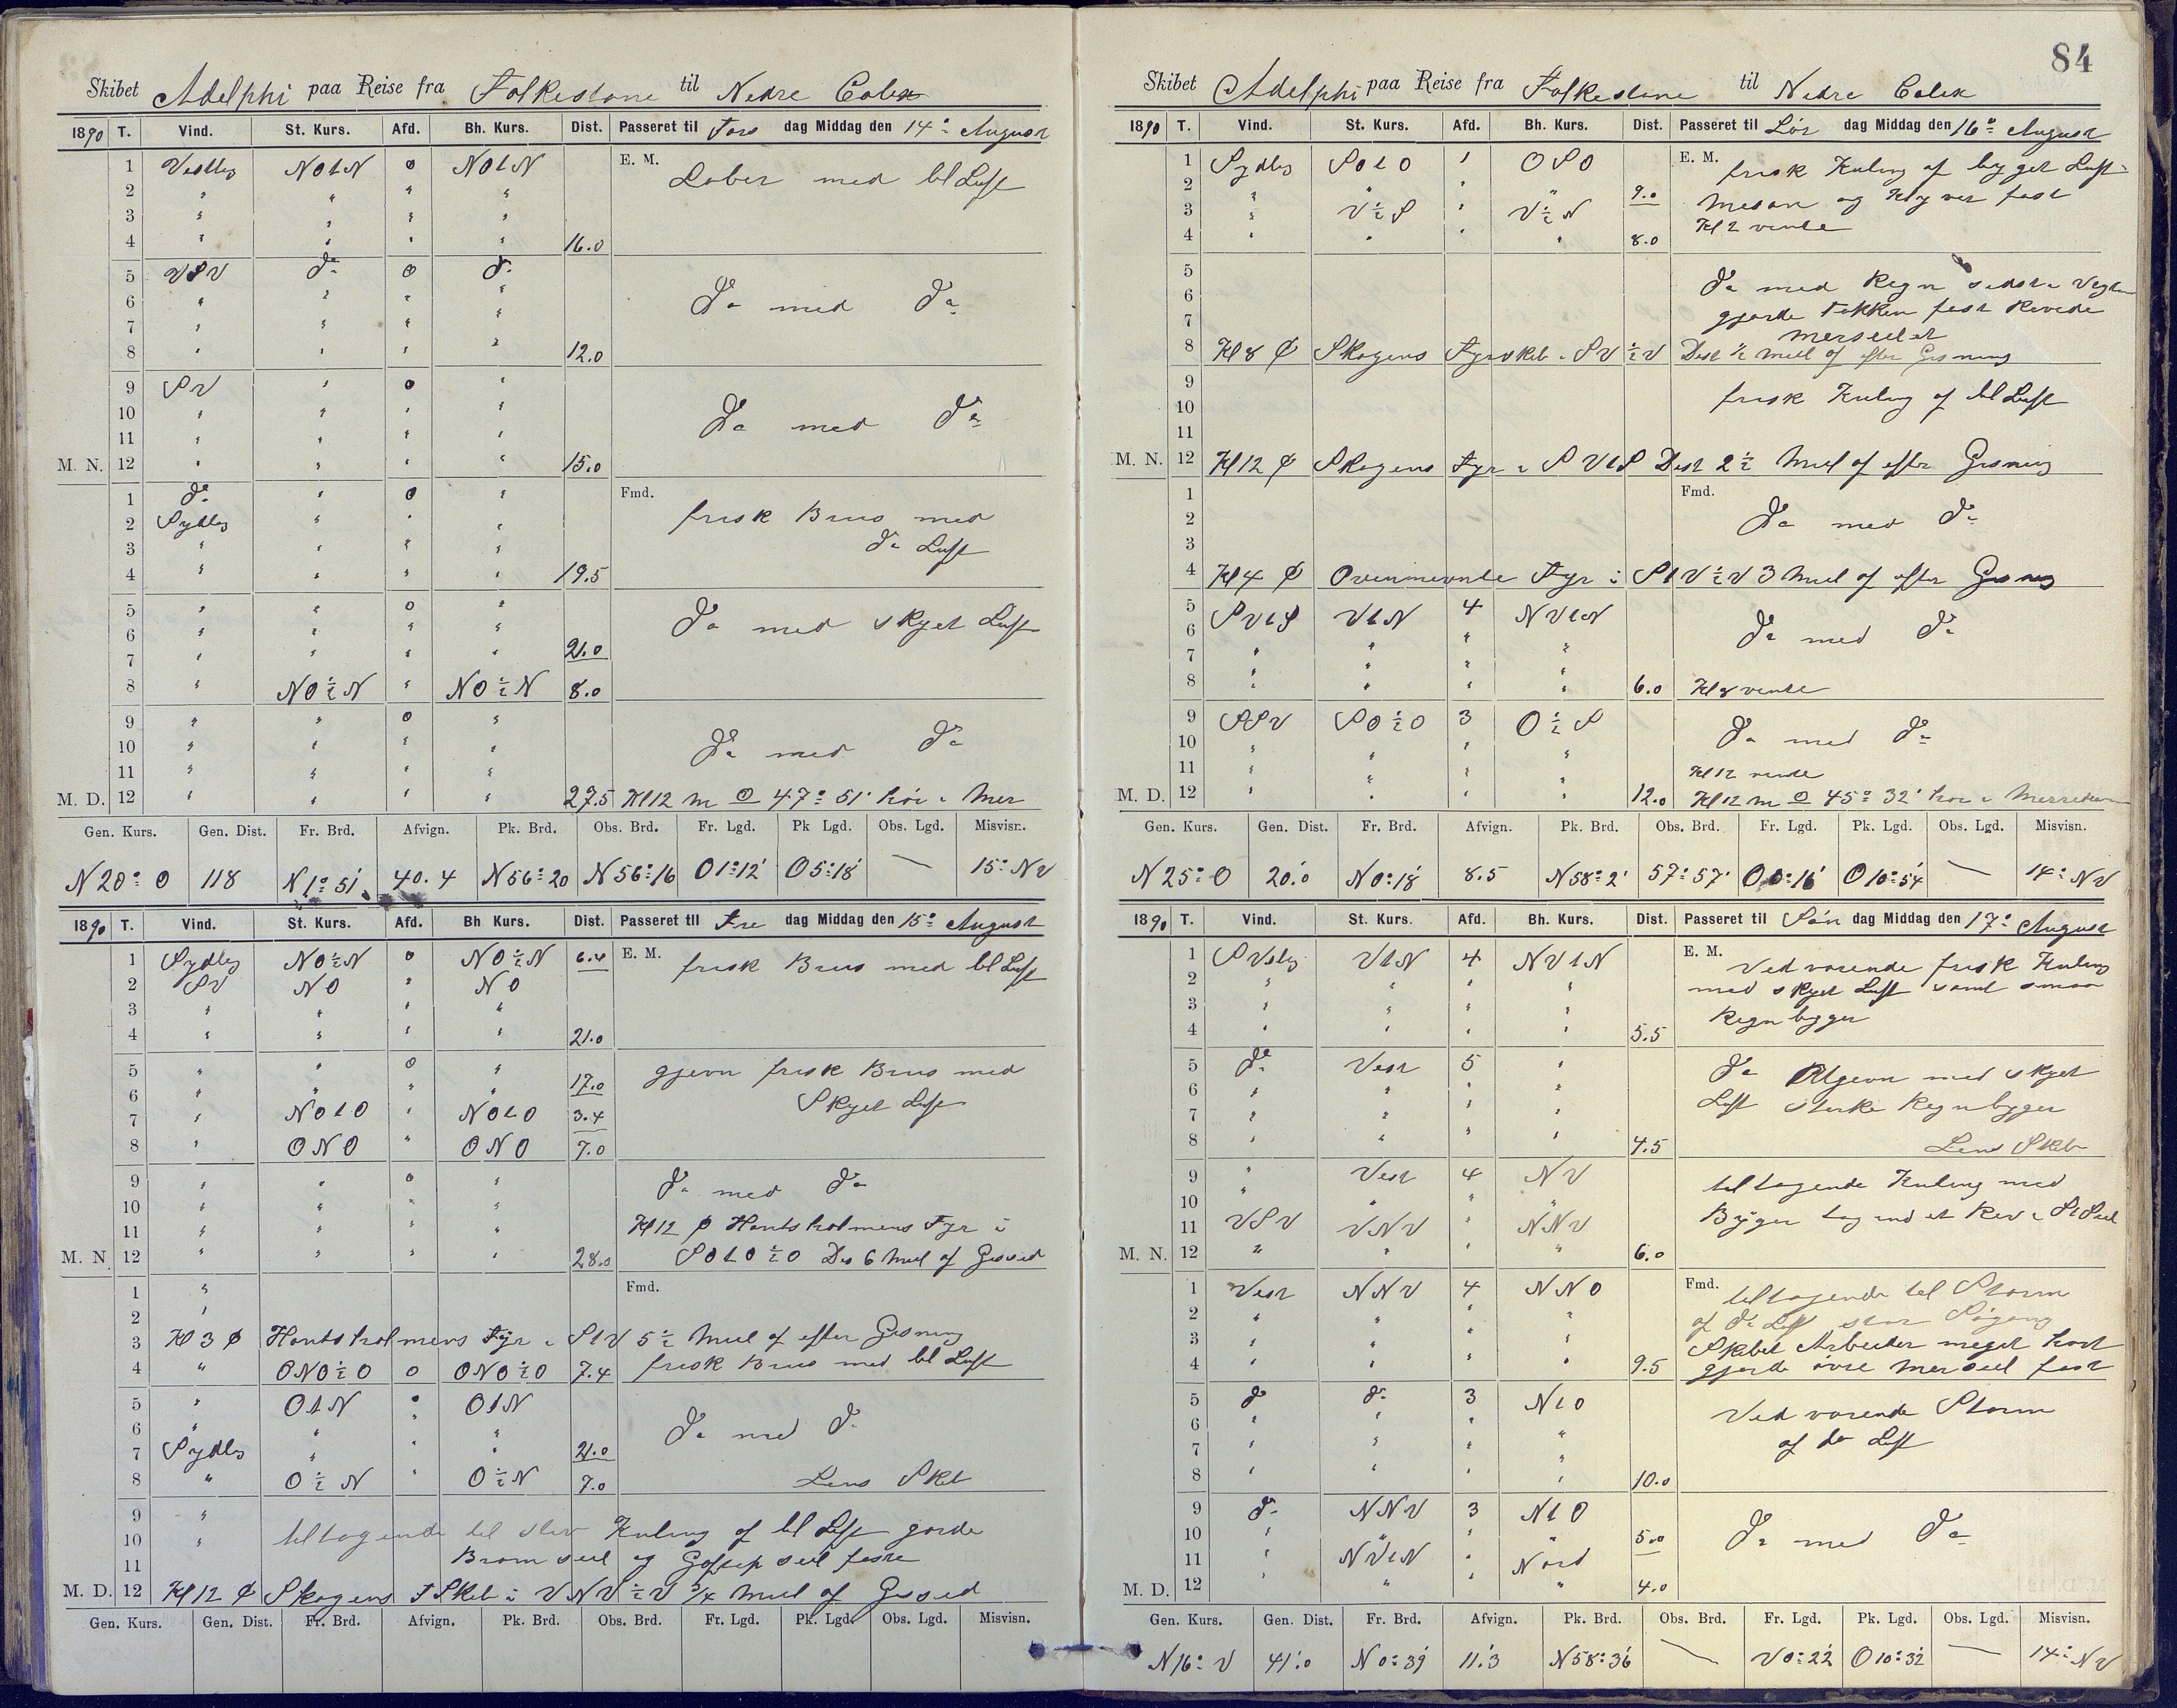 84
Skibet Adelphi paa Reise fra Folkestone til Nedre Calix
1890 T. Vind. St. Kurs. Afd. Bh. Kurs. Dist. Passeret til Tors dag Middag den 14de August
E. M.
1 Vestlig NOtN 0 NOtN Laber med kl Luft
2 " " " "
3 " " " "
4 " " " " 16.0
5 VSV do 0 do
6 " " " " Do med Do
7 " " " "
8 " " " " 12.0
9 SV " 0 "
10 " " " " Do med Do
11 " " " "
M. N. 12 " " " " 15.0
Fmd.
1 do " 0 " frisk Bris med
2 Sydlig " " "
3 " " " " do Luft
4 " " " " 19.5
5 " " 0 " Do med skyet Luft
6 " " " "
7 " " " " 21.0
8 " NO½N " NO½N 8.0
9 " " 0 "
10 " " " " Do med Do
11 " " " "
M. D. 12 " " " " 27.5 Kl 12 m O 47° 51' hör i Mer
Gen. Kurs. Gen. Dist. Fr. Brd. Afvign. Pk. Brd. Obs. Brd. Fr. Lgd. Pk Lgd. Obs. Lgd. Misvisn.
N 20° O 118 N 1° 51' 40.4 N 56° 20 N 56° 16 O 1° 12' O 5° 18' — 15° NV
1890 T. Vind. St. Kurs. Afd. Bh Kurs. Dist. Passeret til Fre dag Middag den 15de August
E. M.
1 Sydlig NO½N 0 NO½N 6.4 frisk Bris med kl Luft
2 SV NO " NO
3 " " " "
4 " " " " 21.0
5 " " 0 " gjevn frisk Bris med
6 " " " " 17.0 Skyet Luft
7 " NOtO " NOtO 3.4
8 " ONO " ONO 7.0
9 " " 0 " Do med Do
10 " " " "
11 " " " " Kl 12 p Hantsholmens Fyr i
M. N. 12 " " " " 28.0 SOtO½O Dis 6 Miil af Gissed
Fmd.
1 "
2 "
3 Kl 3 p Hantsholmens Fyr i StV 5½ Miil af efter Gisning
4 " ONO½O 0 ONO½O 7.4 frisk Bris med kl Luft
5 " OtN 0 OtN
6 " " " " Do med Do
7 Sydlig " " " 21.0
8 " O½N " O½N 7.0 Lens Skib
9 "
10 " tiltagende til stiv Kuling af kl Luft gorde
11 Bramseil og Gaftopseil faste
M. D. 12 Kl 12 p Skagens FSkib i VNV½V ¾ Miil af Gissed
Gen. Kurs. Gen. Dist. Fr. Brd. Afvign. Pk. Brd. Obs. Brd. Fr. Lgd. Pk. Lgd. Obs. Lgd. Misvisn.
Skibet Adelphi paa Reise fra Folkestone til Nedre Calix
1890 T. Vind. St. Kurs. Afd. Bh. Kurs. Dist. Passeret til Lör dag Middag den 16de August
E. M.
1 Sydlig SOtO 1 OSO frisk Kuling af byget Luft
2 " " " " 9.0 Mesan og Klyver fast
3 " V½S " V½N
4 " " " " 8.0 Kl 2 vente
5 Do med Regn sidste Vagten
6 gjorde Fokken fast Revede
7 Merseilet
8 Kl 8 p Skagens Fyrskib i SV½V Dist ½ Miil af efter Gisning
9 frisk Kuling af kl Luft
10
11
M. N. 12 Kl 12 p Skagens Fyr i SVtS Dist 2½ Miil af efter Gisning
Fmd.
1
2 Do med Do
3
4 Kl 4 p Ovennevnte Fyr i StV½V 3 Miil af efter Gisning
5 SVtS VtN 4 NVtN
6 " " " " Do med Do
7 " " " "
8 " " " " 6.0 Kl 8 vente
9 SSV SO½O 3 O½S Do med Do
10 " " " "
11 " " " " Kl 12 vente
M. D. 12 " " " " 12.0 Kl 12 m O 45° 32' hör i Merretien
Gen. Kurs. Gen. Dist. Fr. Brd. Afvign. Pk. Brd. Obs. Brd. Fr. Lgd. Pk. Lgd. Obs. Lgd. Misvisn.
N 25° O 20.0 N 0° 18' 8.5 N 58° 2' 57° 57' O 0° 16' O 10° 54' — 14° NV
1890 T. Vind. St. Kurs. Afd. Bh. Kurs. Dist. Passeret til Sön dag Middag den 17de August
E. M.
1 SVslig VtN 4 NVtN Ved varende frisk Kuling
2 " " " " med skyet Luft samt smaa
3 " " " " Regnbyger
4 " " " " 5.5
5 do Vest 5 " Do Ulgevn med skyet
6 " " " " Luft sterke Regnbyger
7 " " " "
8 " " " " 4.5 Lens Skib
9 " Vest 4 NV tiltagende Kuling med
10 " " " "
11 VSV VNV " NNV Byger tog ind et Rev i StSeil
M. N. 12 " " " " 6.0
Fmd.
1 Vest NNV 4 NNO tiltagende til Storm
2 " " " " af do Luft stor Sögang
3 " " " " Skibet Arbeider meget hart
4 " " " " 9.5 gjorde övre Merseil fast
5 do do 3 NtO Ved varende Storm
6 " " " "
7 " " " " af do Luft
8 " " " " 10.0
9 do NNV 3 NtO
10 " " " " 5.0 Do med Do
11 " NVtN " Nord
M. D. 12 " " " " 4.0
Gen. Kurs. Gen. Dist. Fr. Brd. Afvign. Pk. Brd. Obs. Brd. Fr. Lgd. Pk. Lgd. Obs. Lgd. Misvisn.
N 16° V 41.0 N 0° 39' 11.3 N 58° 36' — V 0° 22' O 10° 32' — 14° NV